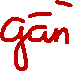 gān